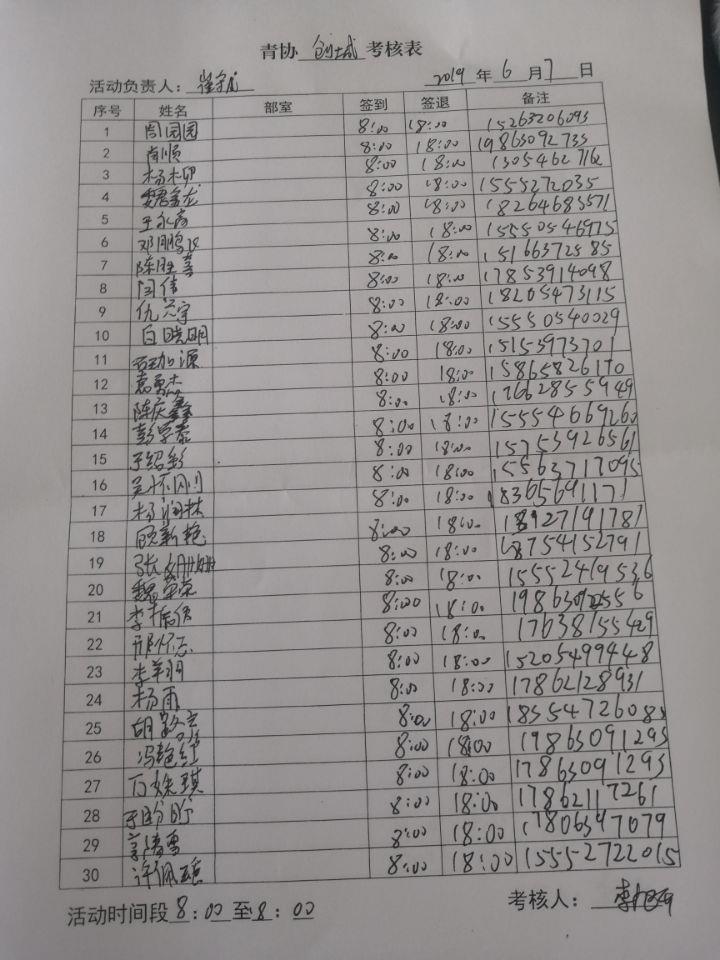 青协 创城 考核表
活动负责人： 2019 年 6 月 7 日
序号 姓名 部室 签到 签退 备注
1 周园园 8:00 18:00 15263206093
2 肖顺 8:00 18:00 19863092735
3 杨 8:00 18:00 13054627162
4 魏金龙 8:00 18:00 1555272035
5 王永 8:00 18:00 18264683571
6 邓鹏飞 8:00 18:00 15550546975
7 陈胜 8:00 18:00 15166372585
8 闫伟 8:00 18:00 17853914098
9 仇 宇 8:00 18:00 18205473115
10 白晓明 8:00 18:00 15550540029
11 源 8:00 18:00 15153973701
12 袁勇杰 8:00 18:00 15865826170
13 陈庆鑫 8:00 18:00 17662855949
14 彭学泰 8:00 18:00 15554669260
15 于绍彬 8:00 18:00 15753926561
16 吴怀刚 8:00 18:00 15563717095
17 杨润林 8:00 18:00 18365691171
18 新艳 8:00 18:00 18927191781
19 张姗姗 8:00 18:00 18754152791
20 魏荣荣 8:00 18:00 15552419536
21 李振信 8:00 18:00
22 邢怀志 8:00 18:00 17638155429
23 李羊羽 8:00 18:00 15205499448
24 杨雨 8:00 18:00 17862128931
25 胡 8:00 18:00 18354726083
26 冯艳红 8:00 18:00 19863091293
27 姝琪 8:00 18:00 17863091293
28 于盼盼 8:00 18:00 17862117261
29 8:00 18:00 17806397079
30 许佩瑶 8:00 18:00 15552722015
活动时间段 8：00 至 8：00 考核人：